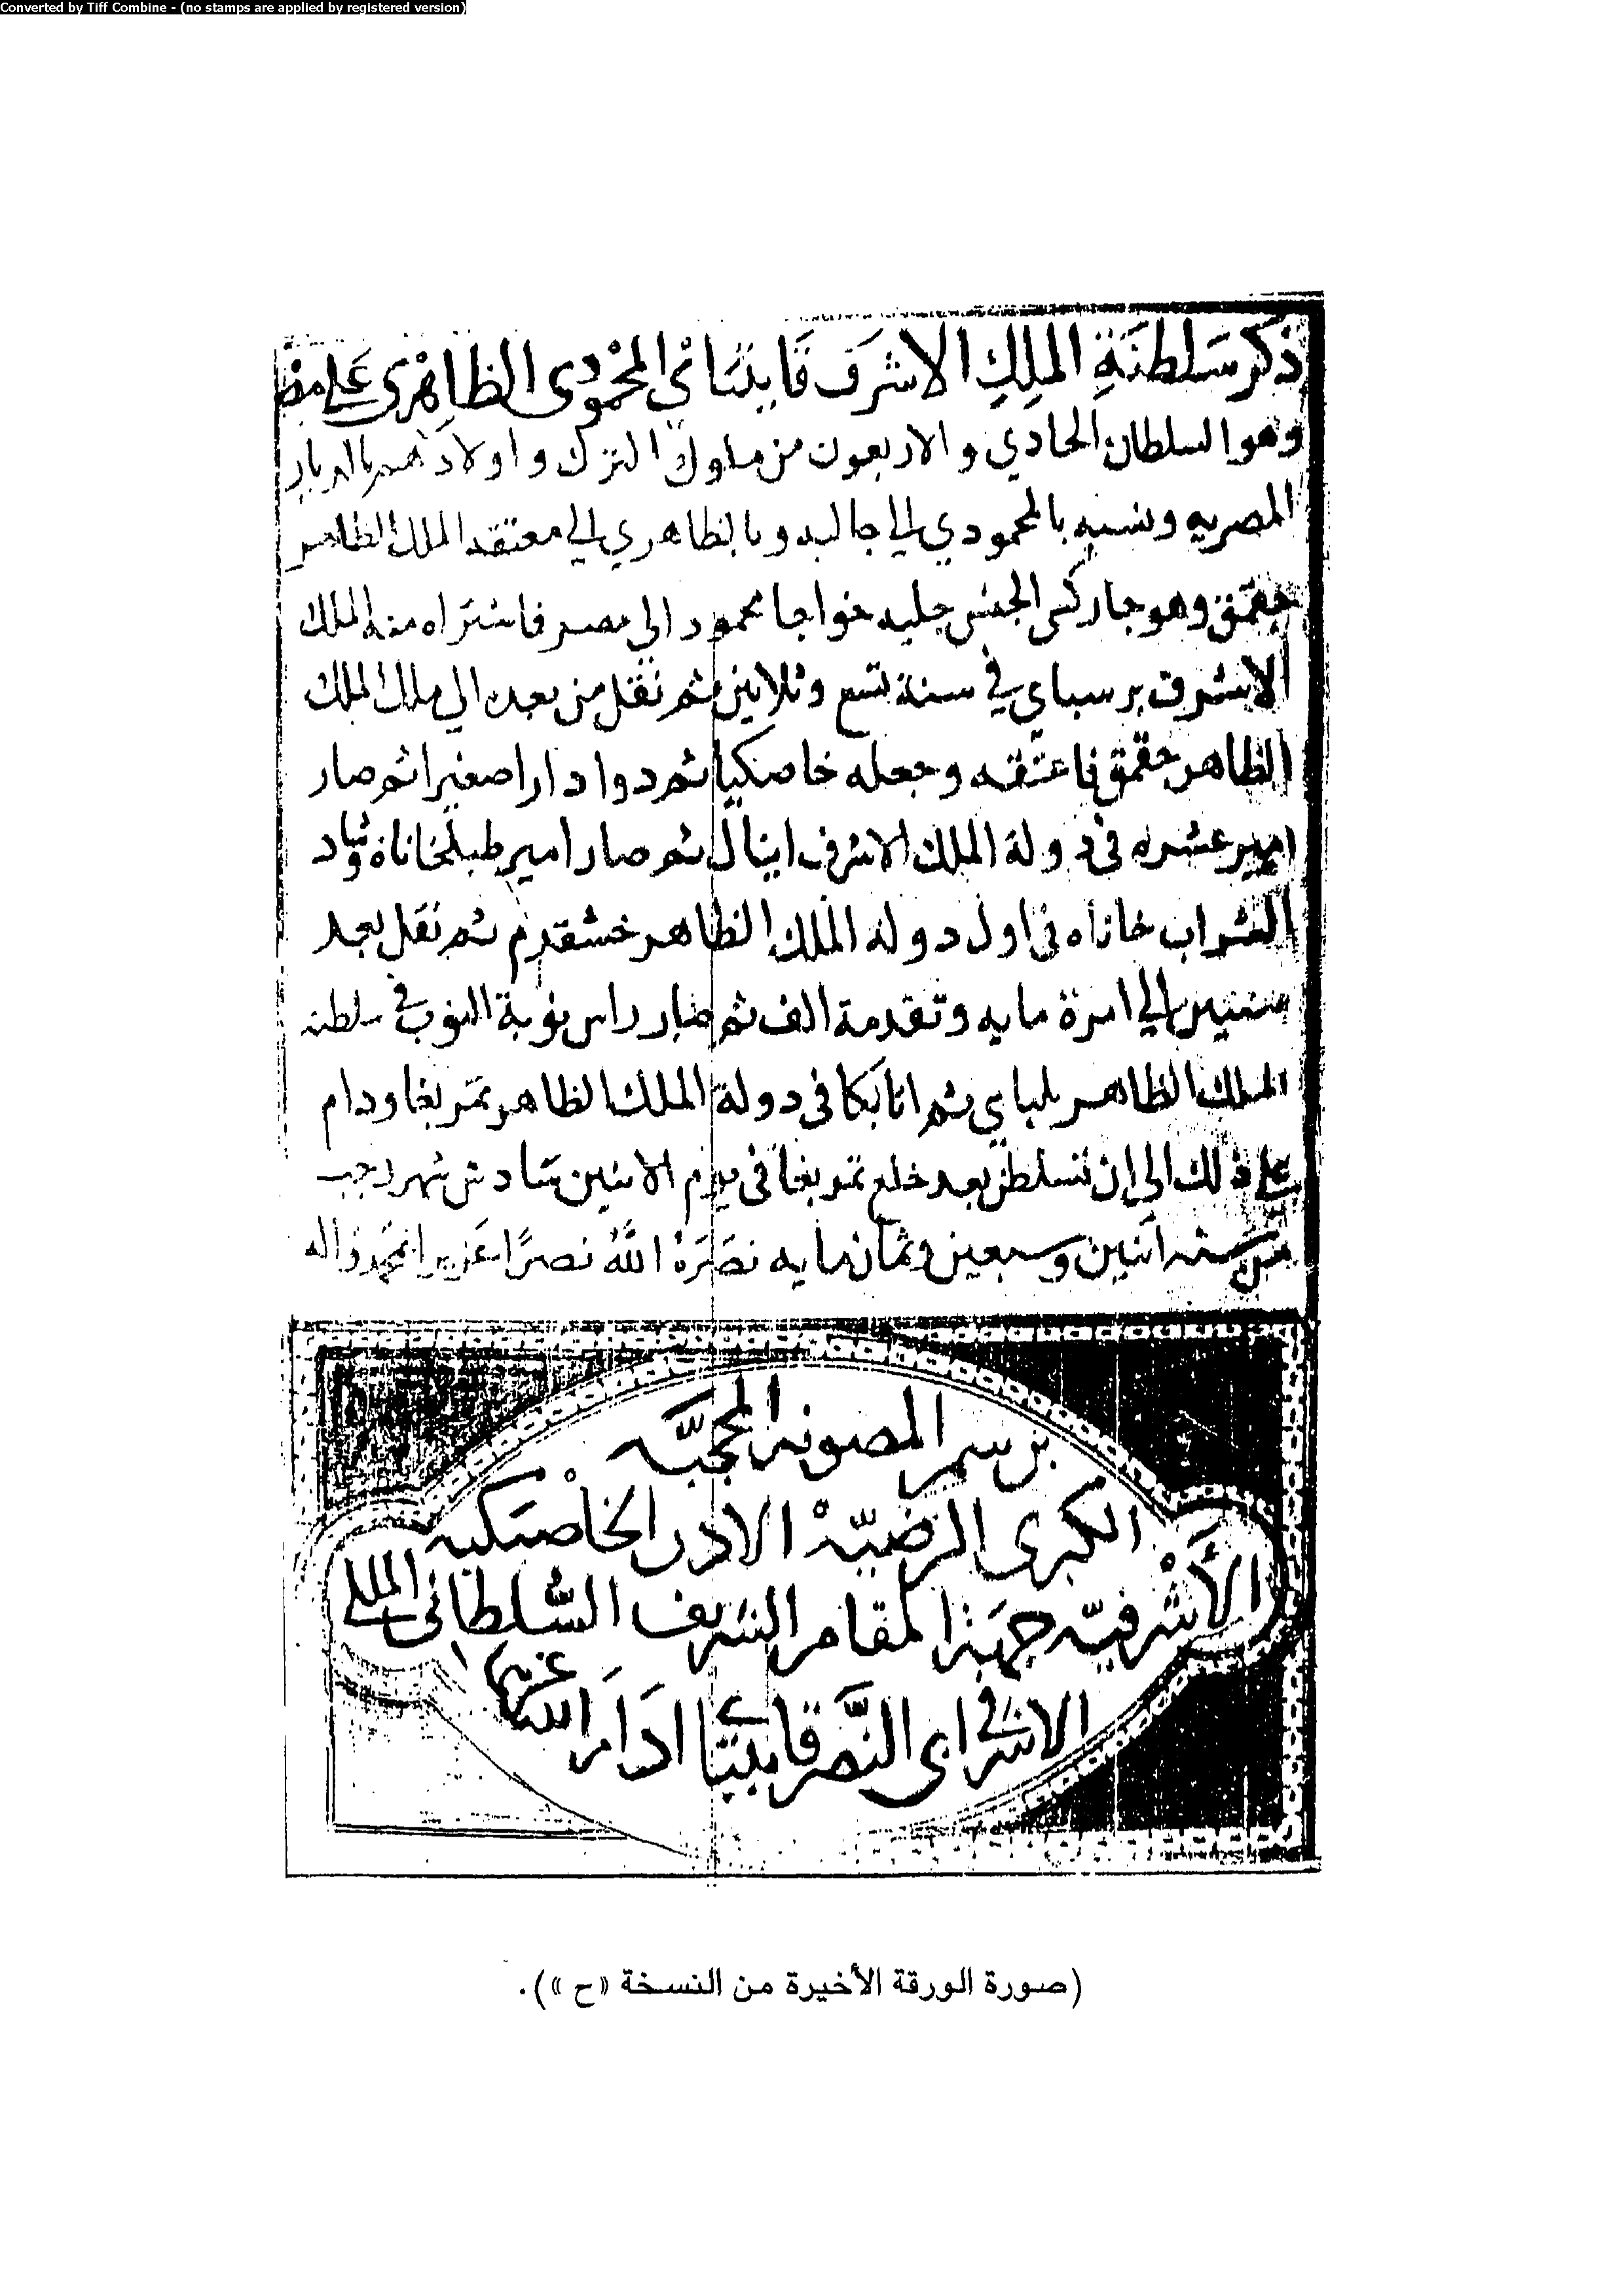 Converted by Tiff Combine - (no stamps are applied by registered version)
ذكر سَلطنَةِ الملِكِ الاشرَف قَايتبَاي المحمُودى الظاهْرى عَلى مصْر
وهوا لسلطان الحادي والاربعون من ملوك الترك واولادهم بالديار
المصريه ونسبه بالمحمودي الي جالبه وبالظاهري الي معتقه الملك الظاهر
جقمق وهو جاركسى الجنس جلبه خواجا محمود الي مصر فاشتراه منه الملك
الاشرف برسباي في سنة تسع وثلاثين ثم نقل من بعده الي ملك الملك
الظاهر جقمق فاعتقه وجعله خاصكيا ثم دوادارا صغيرا ثم صار
امير عشره فى دولة الملك الاشرف اينال ثم صار امير طبلخاناة وشاد
الشراب خاناه فى اول دولة الملك الظاهر خشقدم ثم نقل بعد
سنتين الي امرة مايه وتقدمة الف ثم صار راس نوبة النوب في سلطنه
الملك الظاهر يلباي ثم اتابكا فى دولة الملك الظاهر تمربغا ودام
على ذلك الي ان تسلطن بعد خلع تمربغا فى يوم الاثنين سادس شهر رجب
من سنه اثنين وسبعين وثمان مايه نصَرَهُ اللهُ نصرًا عَزيزا بمحمد واله
برسم المصونه المحجّبَه
الكبرى المرضيّة الادر الخاصكيه
الأشرفيّه جهة المقام الشريف السُّلطانى الملكى
الاشرفى ابى النَّصر قايتباى ادَامَ الله عزهما
(صورة الورقة الأخيرة من النسخة «ح»).